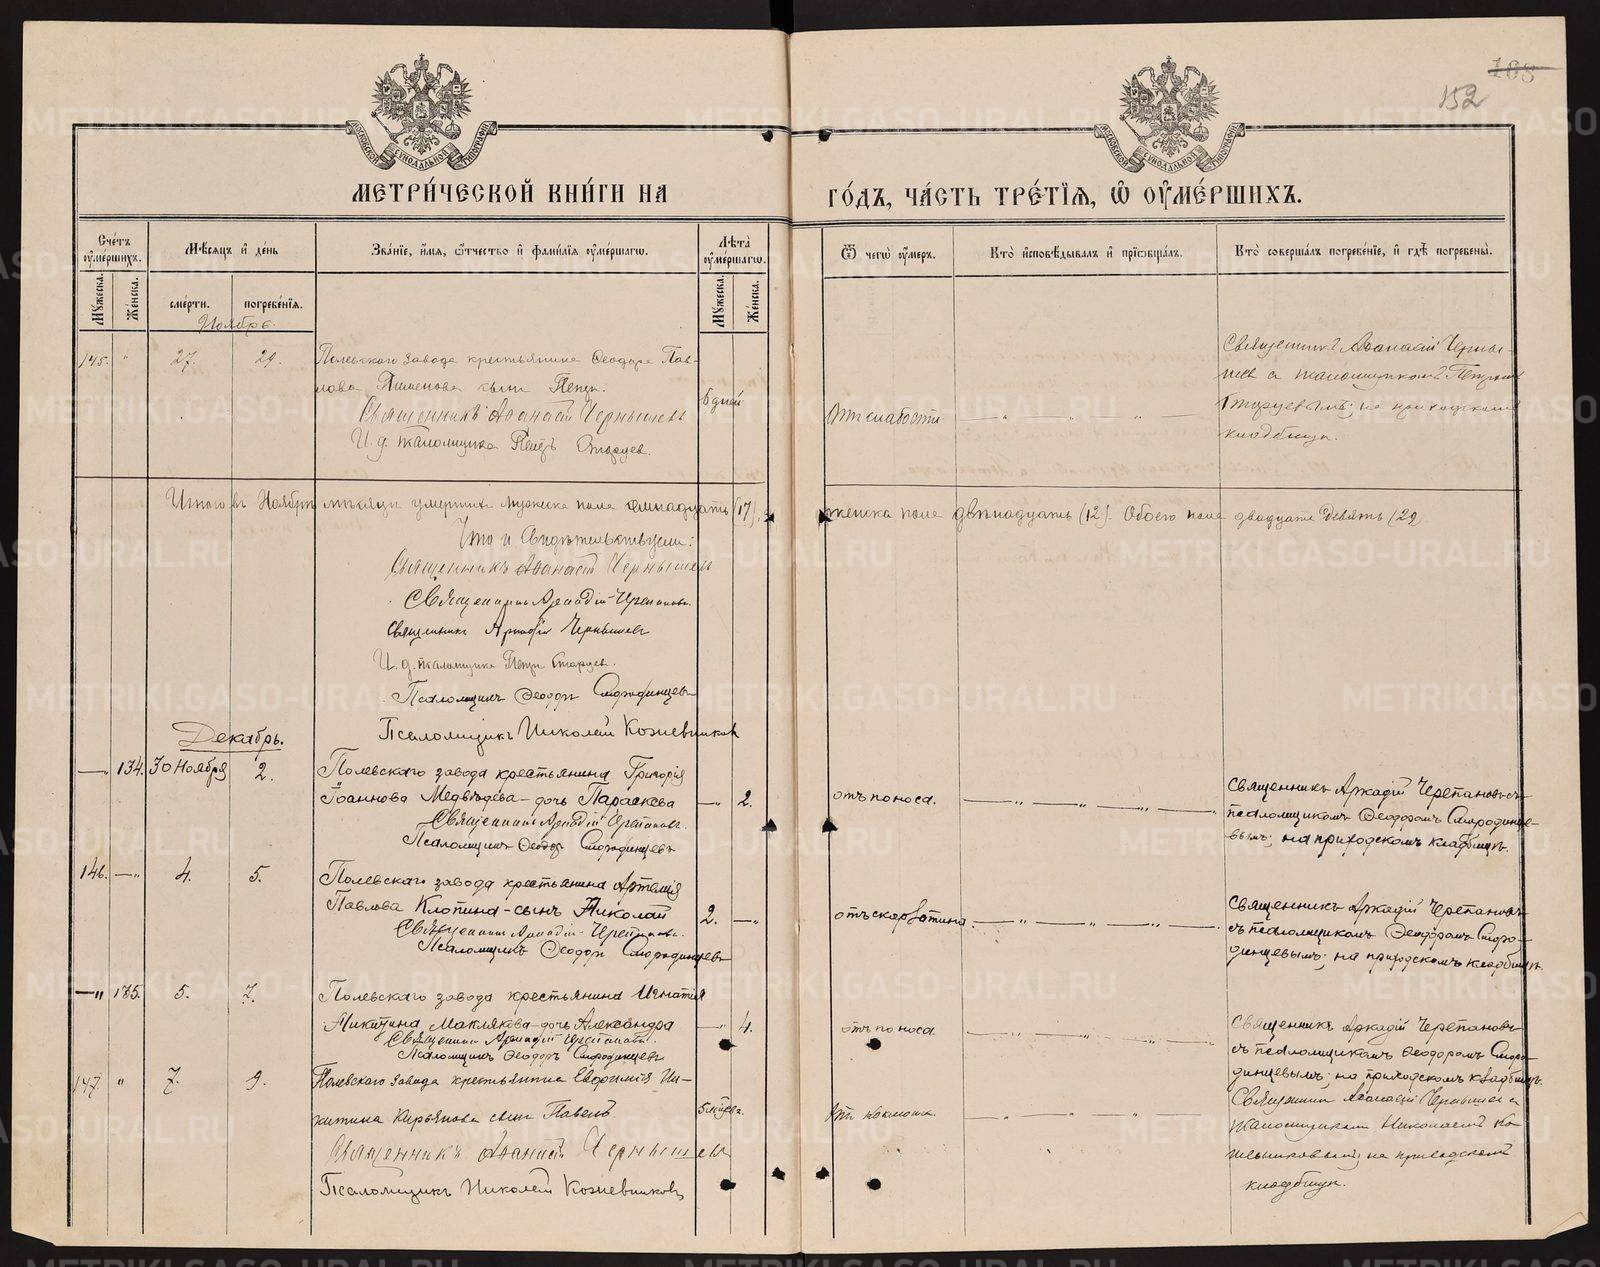 168
152
МОСКОВСКОЙ СѴНОДАЛЬНОЙ ТИПОГРАФІИ
МОСКОВСКОЙ СѴНОДАЛЬНОЙ ТИПОГРАФІИ
МЕТРИ́ЧЕСКОЙ КНИ́ГИ НА
ГО́ДЪ, ЧА́СТЬ ТРЕ́ТЇѦ, Ѡ ОУМЕ́РШИХЪ.
Сче́тъ оуме́ршихъ.
Мѣ́сяцъ и де́нь
Зва́нїе, и́мя, ѻ́тчество и фами́лїя оуме́ршагѡ.
Лѣ́та оуме́ршагѡ.
Ѿ чегѡ̀ оу́меръ.
Кто̀ и҆сповѣ́дывалъ и҆ прїѡбща́лъ.
Кто̀ соверша́лъ погребе́нїе, и҆ гдѣ̀ погребены̀.
Му́жеска.
Же́нска.
сме́рти.
погребе́нїя.
Му́жеска.
Же́нска.
Ноябрь.
145. " 27. 29. Полевскаго завода крестьянина Ѳеодора Пав-
лова Пименова сынъ Петръ.
Священникъ Аѳанасій Чернышевъ
И. д. псаломщика Петръ Старцев.
6 дней
Отъ слабости
Священникъ Аѳанасій Черны-
шев съ псаломщикомъ Петромъ
Старцевымъ; на приходскомъ
кладбищѣ.
Итого въ Ноябрѣ мѣсяцѣ умершихъ мужска пола семнадцать (17).
женска пола двѣнадцать (12). Обоего пола двадцать девять (29)
Что и свидѣтельствуемъ:
Священникъ Аѳанасій Чернышев
Священникъ Аркадій Черепановъ.
Священникъ Аркадій Чернышевъ
И. д. псаломщика Петръ Старцев.
Псаломщикъ Ѳеодоръ Смородинцевъ
Псаломщикъ Николай Кожевниковъ
Декабрь.
— 134. 30 Ноября 2. Полевскаго завода крестьянина Григорія
Іоаннова Медвѣдева - дочь Параскева
Священникъ Аркадій Черепановъ.
Псаломщикъ Ѳеодоръ Смородинцевъ
—„ 2.
отъ поноса.
Священникъ Аркадій Черепановъ съ
псаломщикомъ Ѳеодоромъ Смородинце-
вымъ; на приходскомъ кладбищѣ.
146. —„ 4. 5. Полевскаго завода крестьянина Артемія
Павлова Клопина - сынъ Николай
Священникъ Аркадій Черепановъ.
Псаломщикъ Ѳеодоръ Смородинцевъ
2. —„
отъ скарлатина.
Священникъ Аркадій Черепановъ
съ псаломщикомъ Ѳеодоромъ Сморо-
динцевымъ; на приходскомъ кладбищѣ.
—„ 135. 5. 7. Полевскаго завода крестьянина Игнатія
Никитина Маклякова - дочь Александра
Священникъ Аркадій Черепановъ.
Псаломщикъ Ѳеодоръ Смородинцевъ
—„ 4.
отъ поноса.
Священникъ Аркадій Черепановъ
съ псаломщикомъ Ѳеодоромъ Сморо-
динцевымъ; на приходскомъ кладбищѣ.
147 " 7. 9. Полевскаго завода крестьянина Евѳимія Ни-
китина Кирьянова сынъ Павелъ.
Священникъ Аѳанасій Чернышевъ
Псаломщикъ Николай Кожевниковъ
5 мѣсяц.
Отъ коклюша
Священникъ Аѳанасій Чернышев съ
псаломщикомъ Николаемъ Ко-
жевниковымъ; на приходскомъ
кладбищѣ.
METRIKI.GASO-URAL.RU